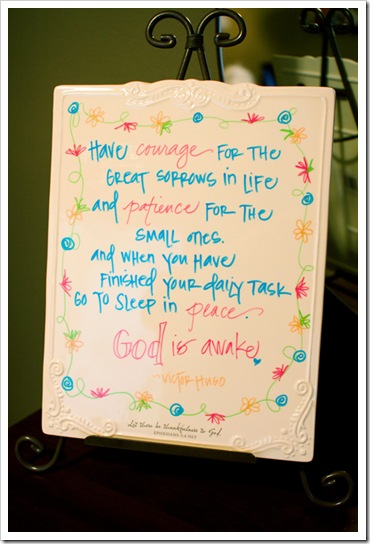 Have courage FOR THE
GREAT SORROWS in LIFE
and patience FOR THE
SMALL ONES.
and WHEN YOU HAVE
FINISHED YOUR DAILY TASK
GO TO SLEEP in peace.
God is awake
~VICTOR HUGO
Let there be thankfulness to God